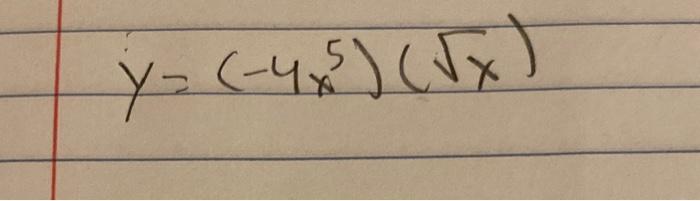 y = (-4x⁵)(√x)